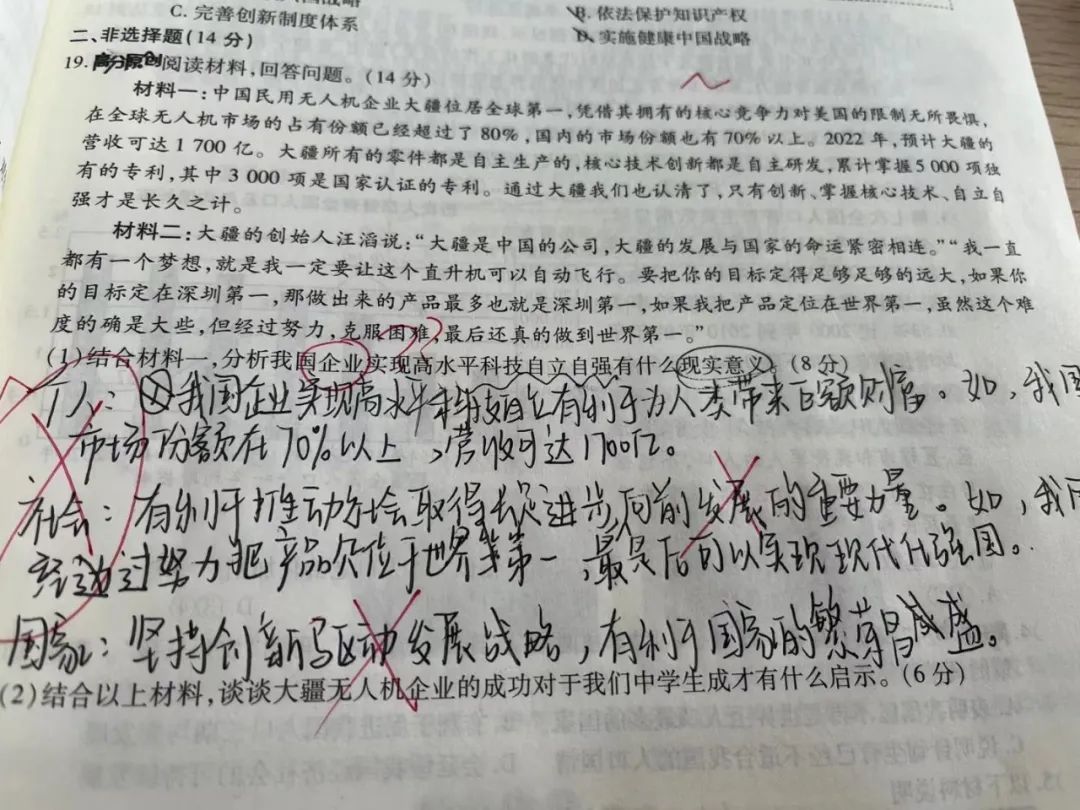 国战略
C. 完善创新制度体系
B. 依法保护知识产权
D. 实施健康中国战略
二、非选择题(14 分)
19. 高分原创 阅读材料,回答问题。(14 分)
材料一:中国民用无人机企业大疆位居全球第一,凭借其拥有的核心竞争力对美国的限制无所畏惧,
在全球无人机市场的占有份额已经超过了 80%,国内的市场份额也有 70% 以上。2022 年,预计大疆的
营收可达 1 700 亿。大疆所有的零件都是自主生产的,核心技术创新都是自主研发,累计掌握 5 000 项独
有的专利,其中 3 000 项是国家认证的专利。通过大疆我们也认清了,只有创新、掌握核心技术、自立自
强才是长久之计。
材料二:大疆的创始人汪滔说:“大疆是中国的公司,大疆的发展与国家的命运紧密相连。”“我一直
都有一个梦想,就是我一定要让这个直升机可以自动飞行。要把你的目标定得足够足够的远大,如果你
的目标定在深圳第一,那做出来的产品最多也就是深圳第一,如果我把产品定位在世界第一,虽然这个难
度的确是大些,但经过努力,克服困难,最后还真的做到世界第一。”
(1)结合材料一,分析我国企业实现高水平科技自立自强有什么现实意义。(8 分)
个人:我国企业实现高水平科技自立有利于为人类带来巨额财富。如,我国
市场份额在70%以上,营收可达1700亿。
社会:有利于推动社会取得长足进步向前发展的重要力量。如,我
经过努力把产品定位于世界第一,最后可以实现现代化强国。
国家:坚持创新驱动发展战略,有利于国家的繁荣昌盛。
(2)结合以上材料,谈谈大疆无人机企业的成功对于我们中学生成才有什么启示。(6 分)